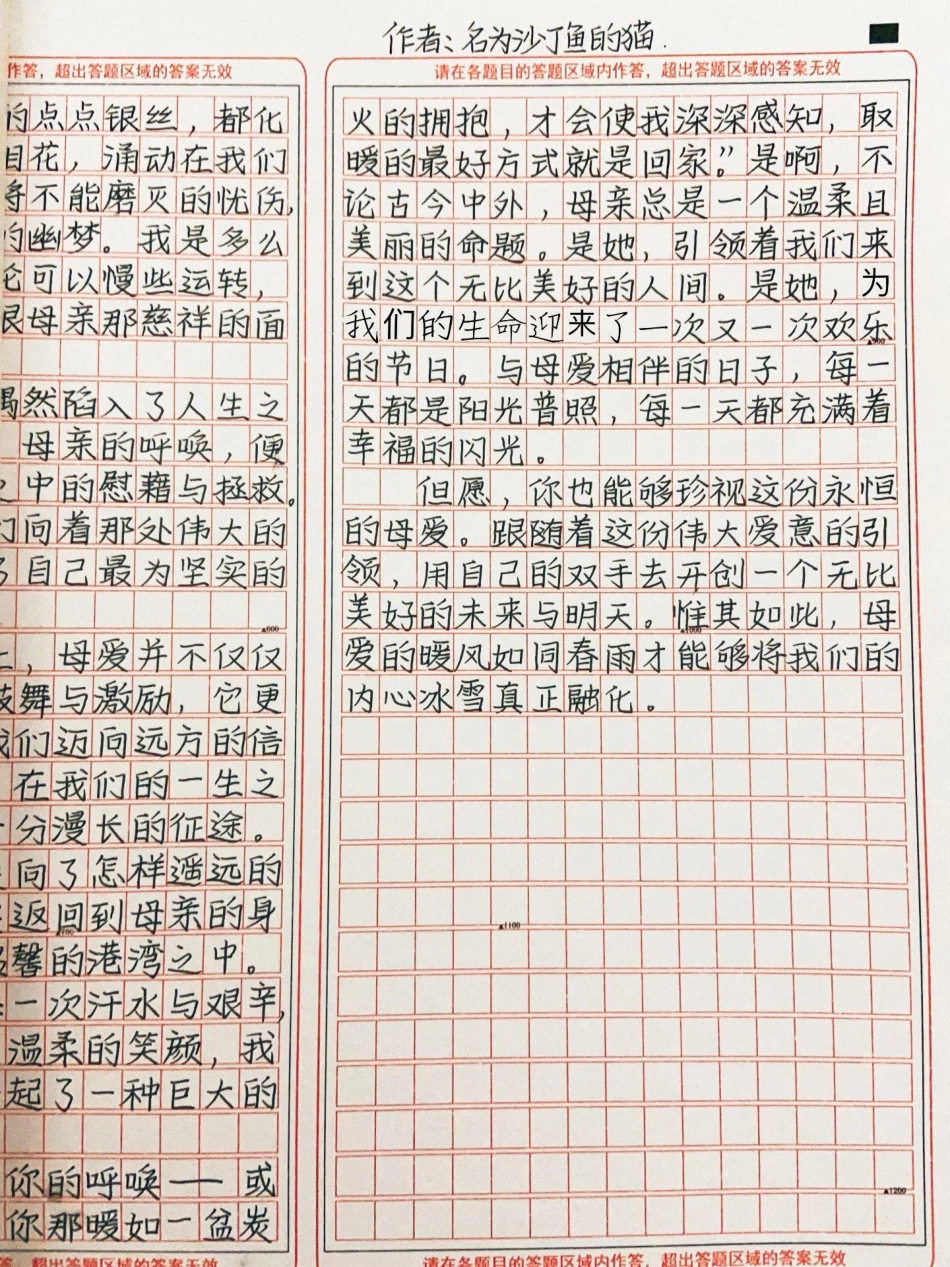 作者:名为沙丁鱼的猫.
作答，超出答题区域的答案无效
的点点银丝，都化
目花，涌动在我们
将不能磨灭的忧伤，
的幽梦。我是多么
轮可以慢些运转，
母亲那慈祥的面
偶然陷入了人生之
母亲的呼唤，便
之中的慰藉与拯救。
们向着那处伟大的
了自己最为坚实的
▲600
上，母爱并不仅仅
鼓舞与激励，它更
我们迈向远方的信
在我们的一生之
十分漫长的征途。
向了怎样遥远的
返回到母亲的身
馨的港湾之中。
一次汗水与艰辛，
温柔的笑颜，我
起了一种巨大的
你的呼唤——或
你那暖如一盆炭
答，超出答题区域的答案无效
请在各题目的答题区域内作答，超出答题区域的答案无效
火的拥抱，才会使我深深感知，取
暖的最好方式就是回家。”是啊，不
论古今中外，母亲总是一个温柔且
美丽的命题。是她，引领着我们来
到这个无比美好的人间。是她，为
我们的生命迎来了一次又一次欢乐
▲900
的节日。与母爱相伴的日子，每一
天都是阳光普照，每一天都充满着
幸福的闪光。
但愿，你也能够珍视这份永恒
的母爱。跟随着这份伟大爱意的引
领，用自己的双手去开创一个无比
美好的未来与明天。惟其如此，母
▲1000
爱的暖风如同春雨才能够将我们的
内心冰雪真正融化。
▲1100
▲1200
请在各题目的答题区域内作答，超出答题区域的答案无效